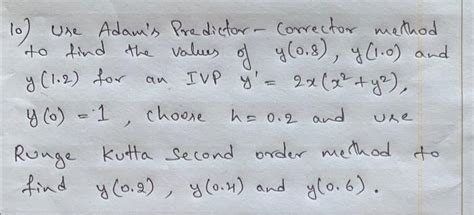 10) Use Adam's Predictor - Corrector method
to find the values of y(0.8), y(1.0) and
y(1.2) for an IVP y' = 2x(x²+y²),
y(0) = 1 , choose h = 0.2 and use
Runge Kutta Second order method to
find y(0.2), y(0.4) and y(0.6).